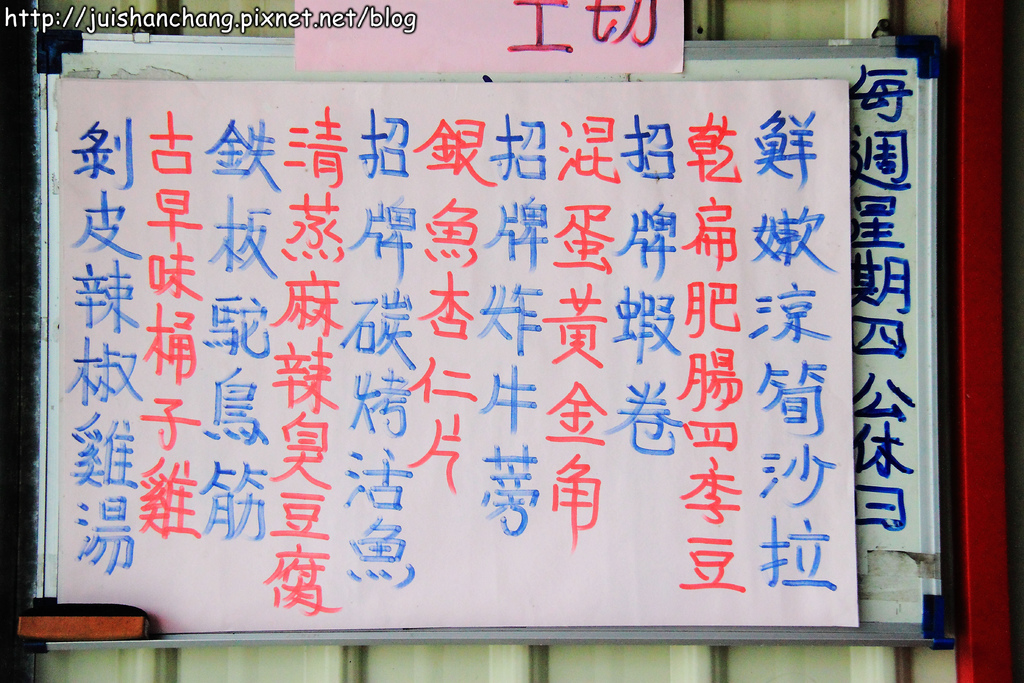 http://juishanchang.pixnet.net/blog
工切
每週星期四公休日
鮮嫩涼筍沙拉
乾扁肥腸四季豆
招牌蝦卷
混蛋黃金角
招牌炸牛蒡
銀魚杏仁片
招牌碳烤活魚
清蒸麻辣臭豆腐
鉄板駝鳥筋
古早味桶子雞
剝皮辣椒雞湯